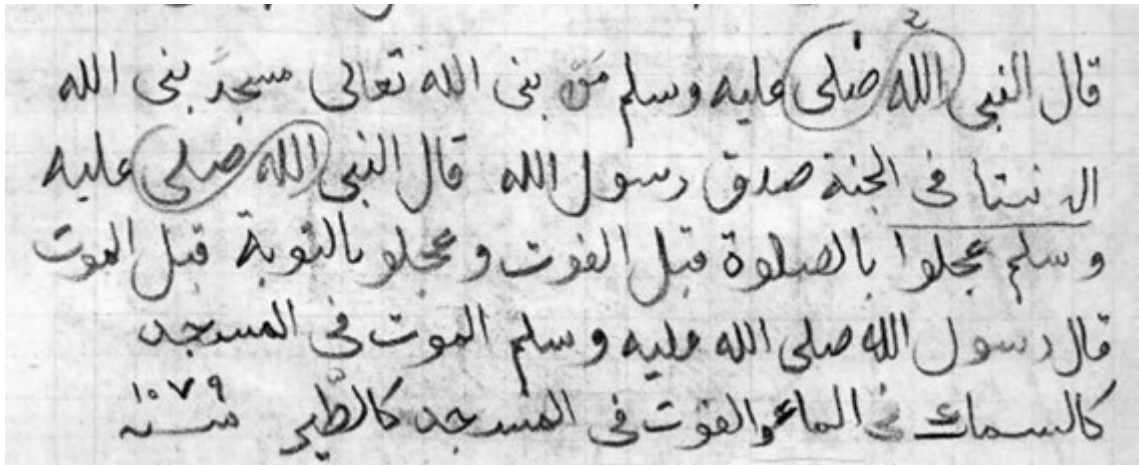 قال النبى الله صلى عليه وسلم مَنْ بنى الله تعالى مسجدً بنى الله
اله نبتا فى الجنة صدق رسول الله قال النبى الله صلى عليه
وسلم عجلوا بالصلوة قبل الفوت وعجلو بالتوبة قبل الموت
قال رسول الله صلى الله عليه وسلم الموت فى المسجد
كالسماك فى الماء والفوت فى المسجد كالطّير سنه ١٠٧٩